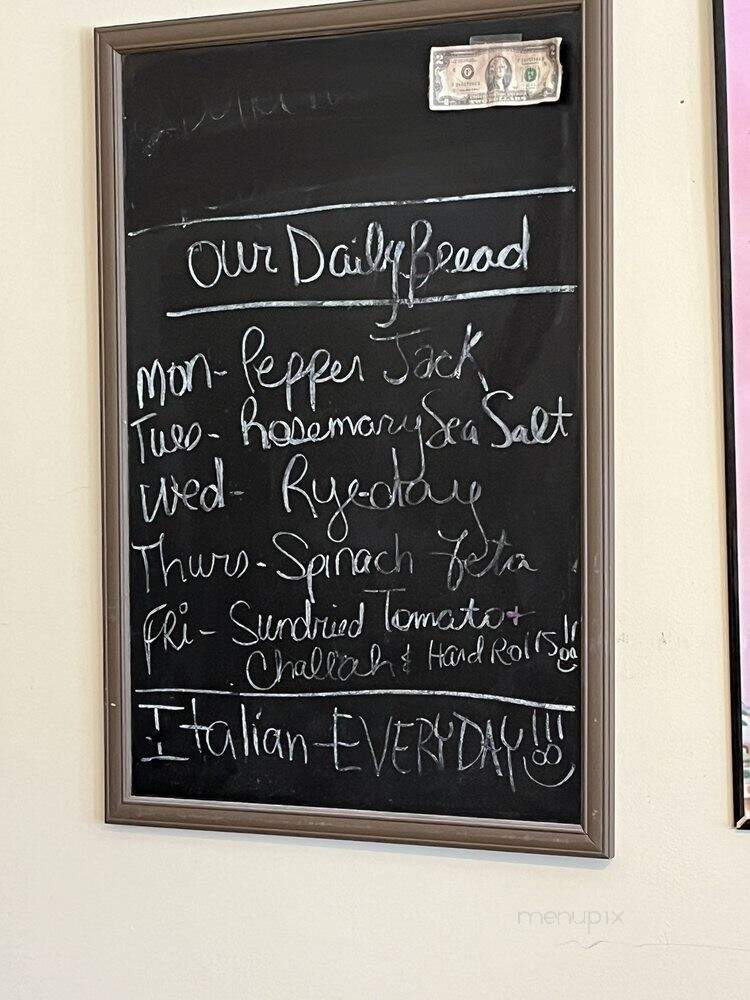 Our Daily Bread
Mon- Pepper Jack
Tues- Rosemary Sea Salt
Wed- Rye-day
Thurs- Spinach Feta
FRi- Sundried Tomato +
Challah & Hard Rolls!!
Italian-EVERYDAY!!!
menupix